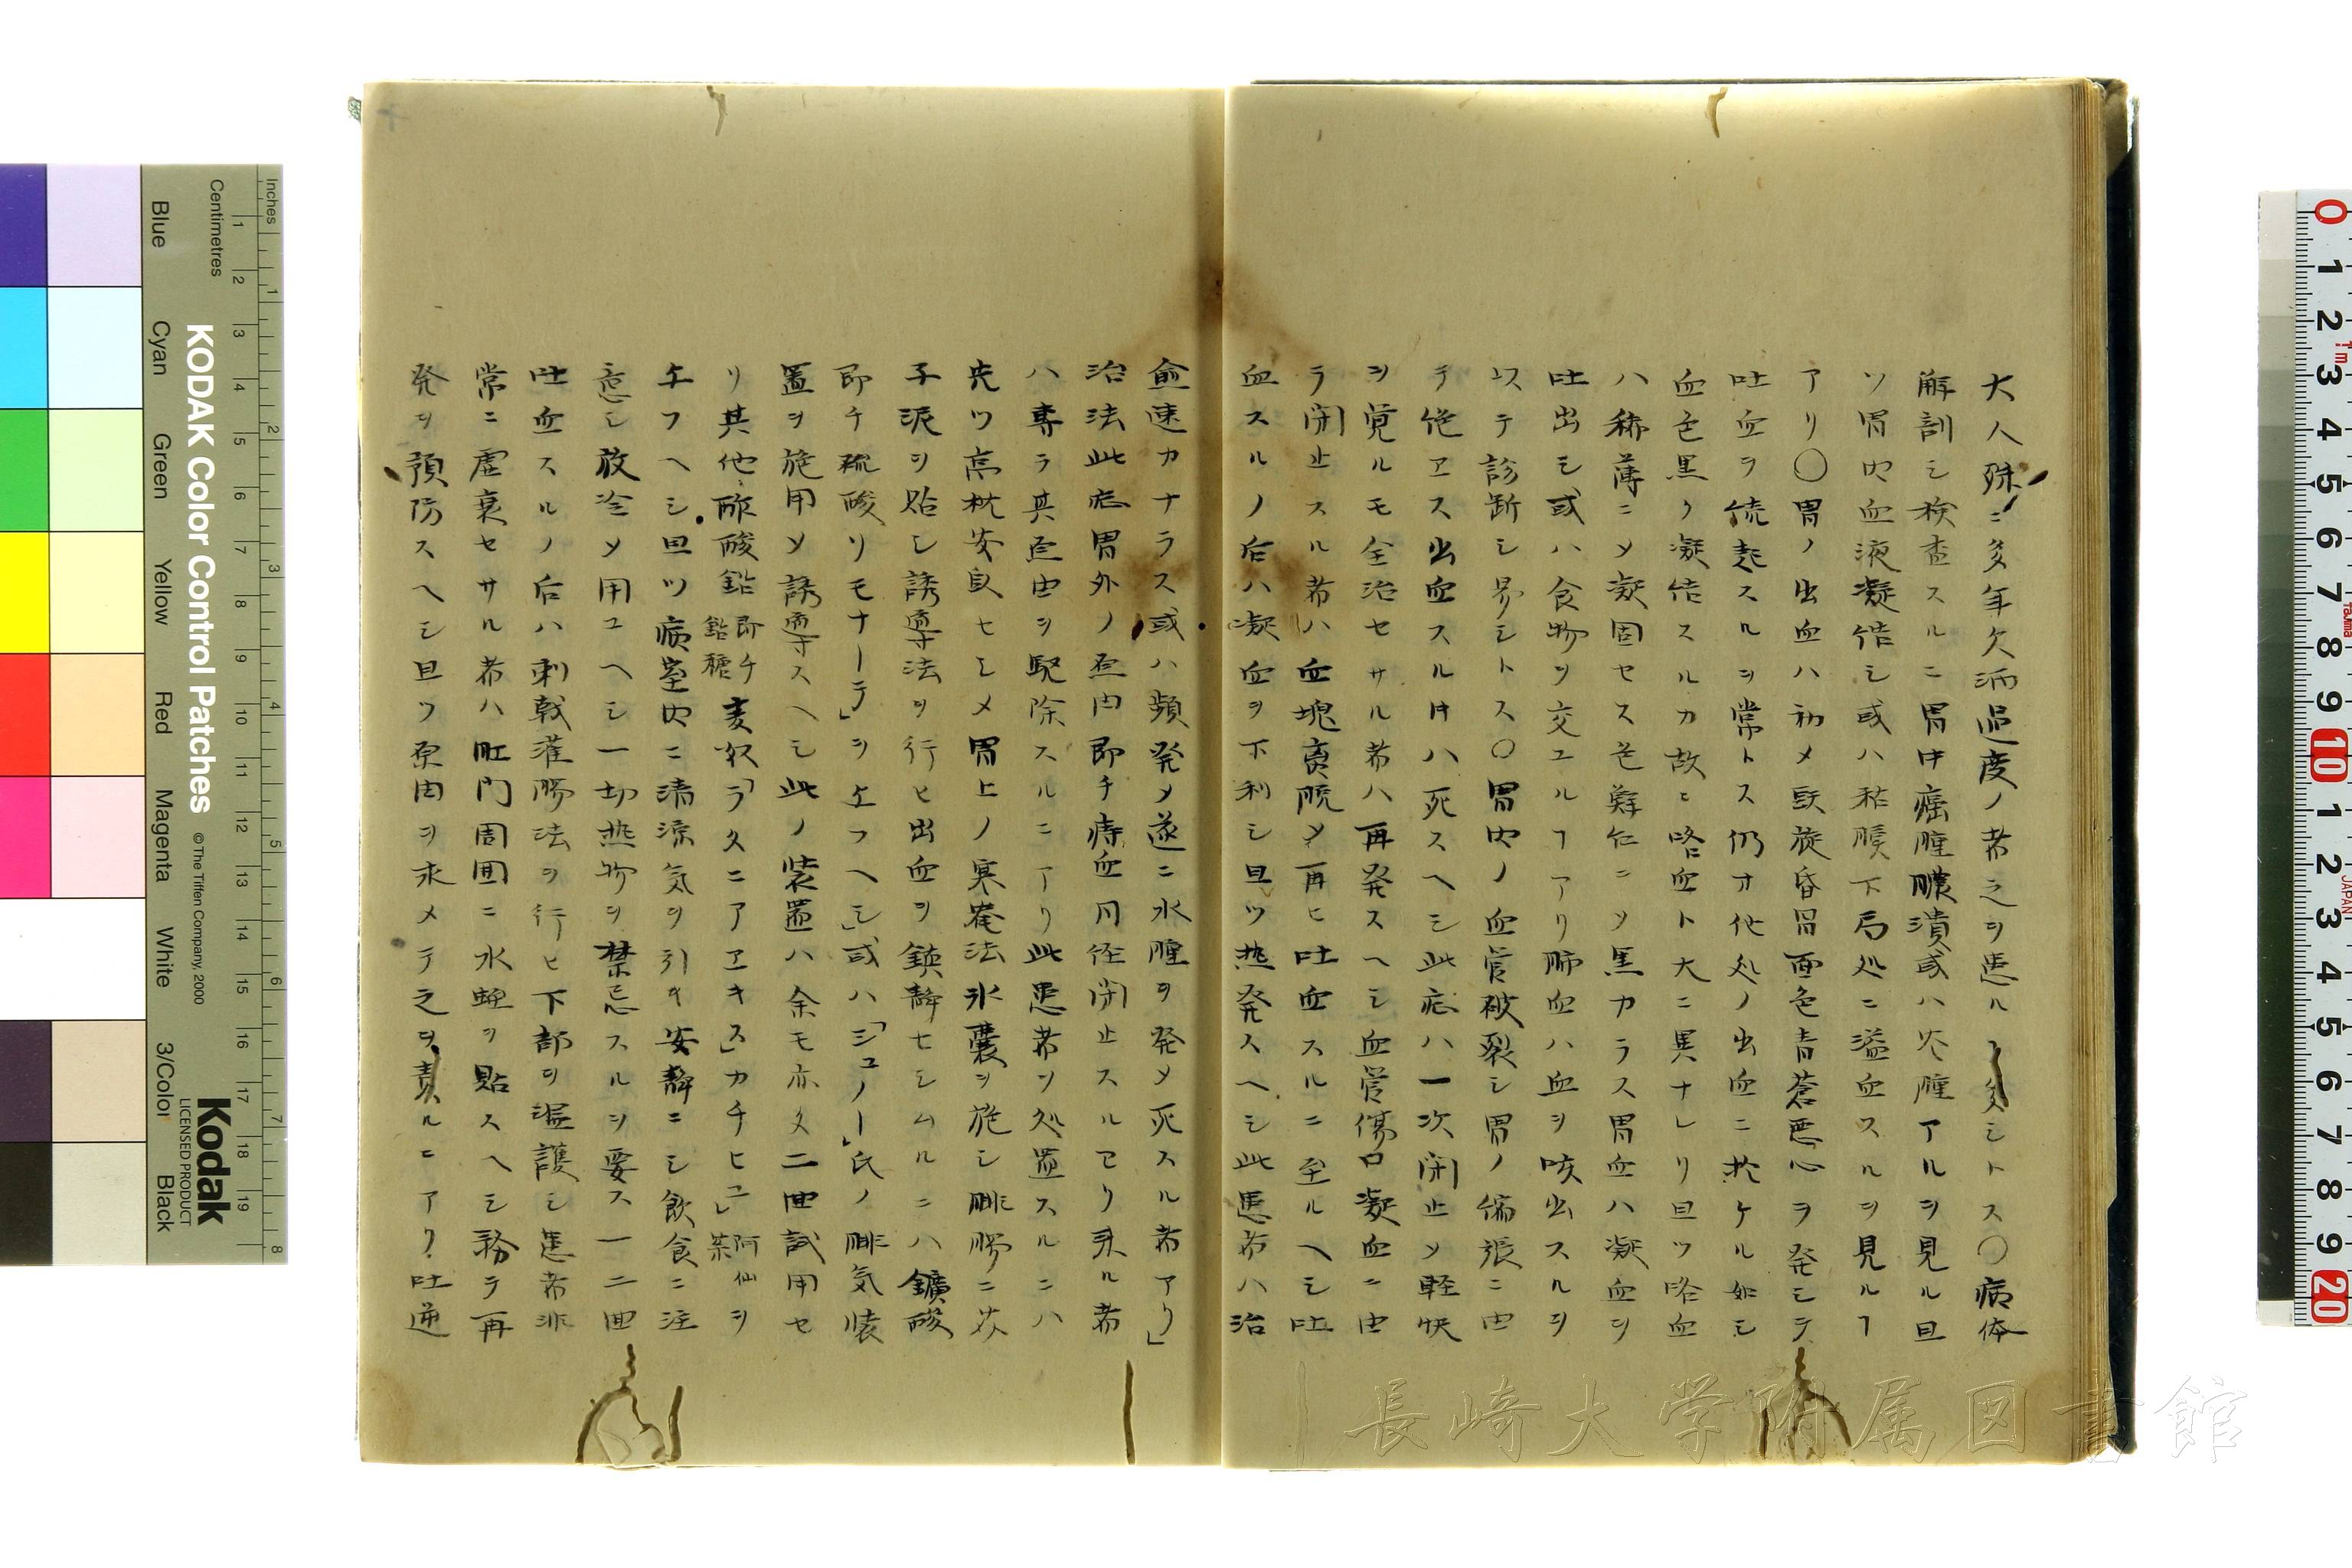 大人殊ニ多年欠洒過度ノ者之ヲ患ルヿ多シトス〇病体
解剖シ検査スルニ胃中癌腫膿潰或ハ穴腫アルヲ見ル且
ツ胃内血液凝結シ或ハ粘膜下局処ニ溢血スルヲ見ルヿ
アリ〇胃ノ出血ハ初メ眩旋昏冒面色青蒼悪心ヲ発シテ
吐血ヲ続起スルヲ常トス仍オ他処ノ出血ニ於ケル如シ
血色黒ク凝結スルカ故ニ咯血ト大ニ異ナレリ且ツ咯血
ハ稀薄ニメ凝固セス色鮮仁ニメ黒カラス胃血ハ凝血ヲ
吐出シ或ハ食物ヲ交ユルヿアリ肺血ハ血ヲ咳出スルヲ
以テ診断シ易シトス〇胃内ノ血管破裂シ胃ノ偏張ニ由
テ絶エス出血スル時ハ死スヘシ此症ハ一次閉止メ軽快
ヲ覚ルモ全治セサル者ハ再発スヘシ血管傷口凝血ニ由
ラ閉止スル者ハ血塊離脱メ再ヒ吐血スルニ至ルヘシ吐
血スルノ后ハ凝血ヲ下利シ且ツ熱発スヘシ此患者ハ治
愈速カナラス或ハ頻発メ遂ニ水腫ヲ発メ死スル者アリ」
治法此症胃外ノ原因即チ痔血月経閉止スルヨリ来ル者
ハ専ラ其原由ヲ駆除スルニアリ此患者ヲ処置スルニハ
先ツ高枕安臥セシメ胃上ノ寒罨法氷嚢ヲ施シ腓腸ニ芥
子泥ヲ貼シ誘導法ヲ行ヒ出血ヲ鎮静セシムルニハ鑛酸
即チ硫酸リモナーテ」ヲ与フヘシ」或ハ「ジュノー」氏ノ腓気装
置ヲ施用メ誘導スヘシ此ノ装置ハ余モ亦タ二回試用セ
リ其他酢酸鉛 即チ鉛糖 麦奴「ラタニアエキス」カチヒユ」阿仙茶ヲ
与フヘシ且ツ病室内ニ清涼気ヲ引キ安静ニシ飲食ニ注
意シ放冷メ用ユヘシ一切熱物ヲ禁忌スルヲ要ス一二回
吐血スルノ后ハ刺戟灌腸法ヲ行ヒ下部ヲ温護シ患者非
常ニ虚衰セサル者ハ肛門周囲ニ水蛭ヲ貼スヘシ務テ再
発ヲ預防スヘシ且ツ原由ヲ求メテ之ヲ責ルニアリ吐逆
長崎大学附属図書館
KODAK Color Control Patches
© The Tiffen Company, 2000
Kodak
LICENSED PRODUCT
Inches
Centimetres
Blue
Cyan
Green
Yellow
Red
Magenta
White
3/Color
Black